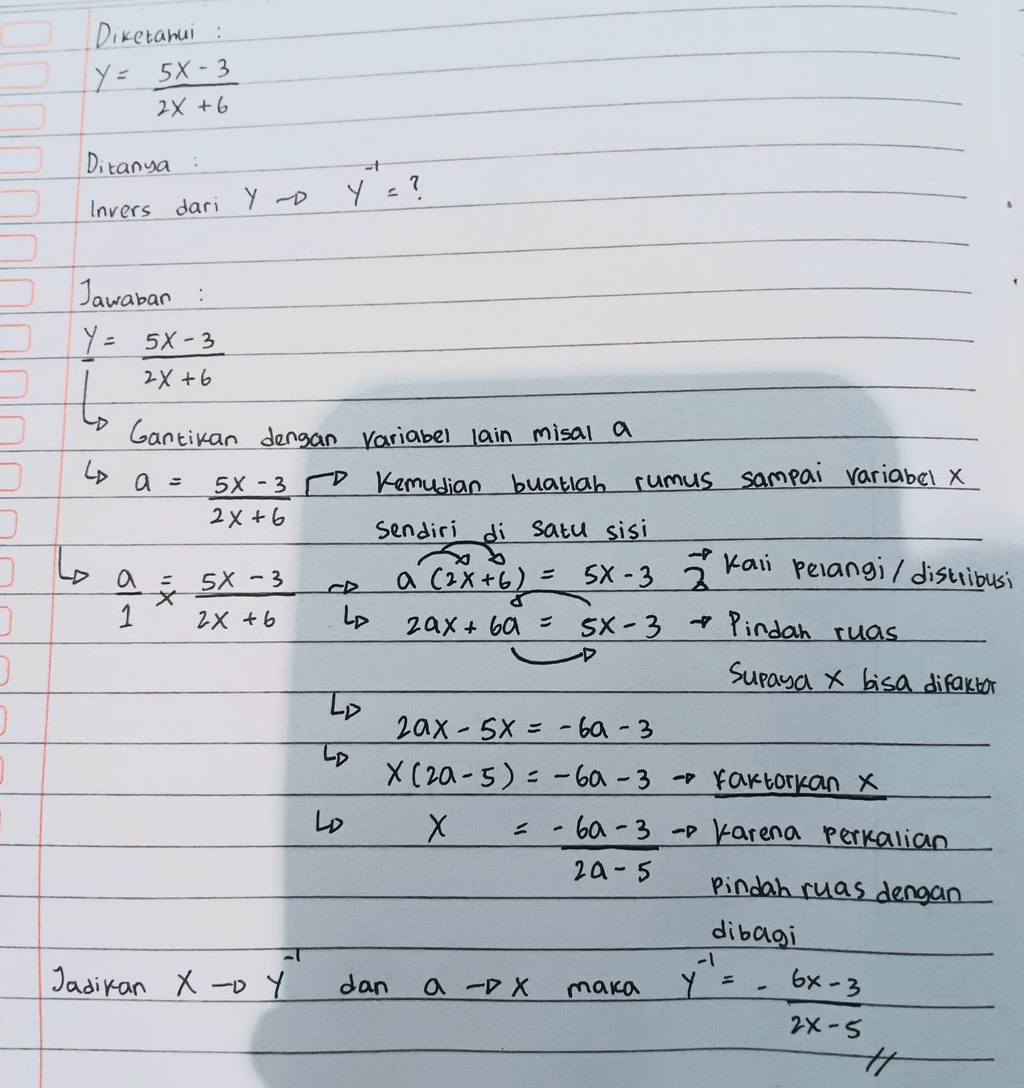 Diketahui :
Y = 5X - 3
2X + 6
Ditanya :
Invers dari Y → Y⁻¹ = ?
Jawaban :
Y = 5X - 3
2X + 6
↳ Gantikan dengan variabel lain misal a
↳ a = 5X - 3 → Kemudian buatlah rumus sampai variabel X
2X + 6 sendiri di satu sisi
↳ a = 5X - 3 → a (2X + 6) = 5X - 3 → Kali pelangi / distribusi
1 × 2X + 6 ↳ 2aX + 6a = 5X - 3 → Pindah ruas
Supaya X bisa difaktor
↳ 2aX - 5X = -6a - 3
↳ X (2a - 5) = -6a - 3 → Faktorkan X
↳ X = -6a - 3 → Karena perkalian
2a - 5 pindah ruas dengan
dibagi
Jadikan X → Y⁻¹ dan a → X maka Y⁻¹ = - 6X - 3
2X - 5 //